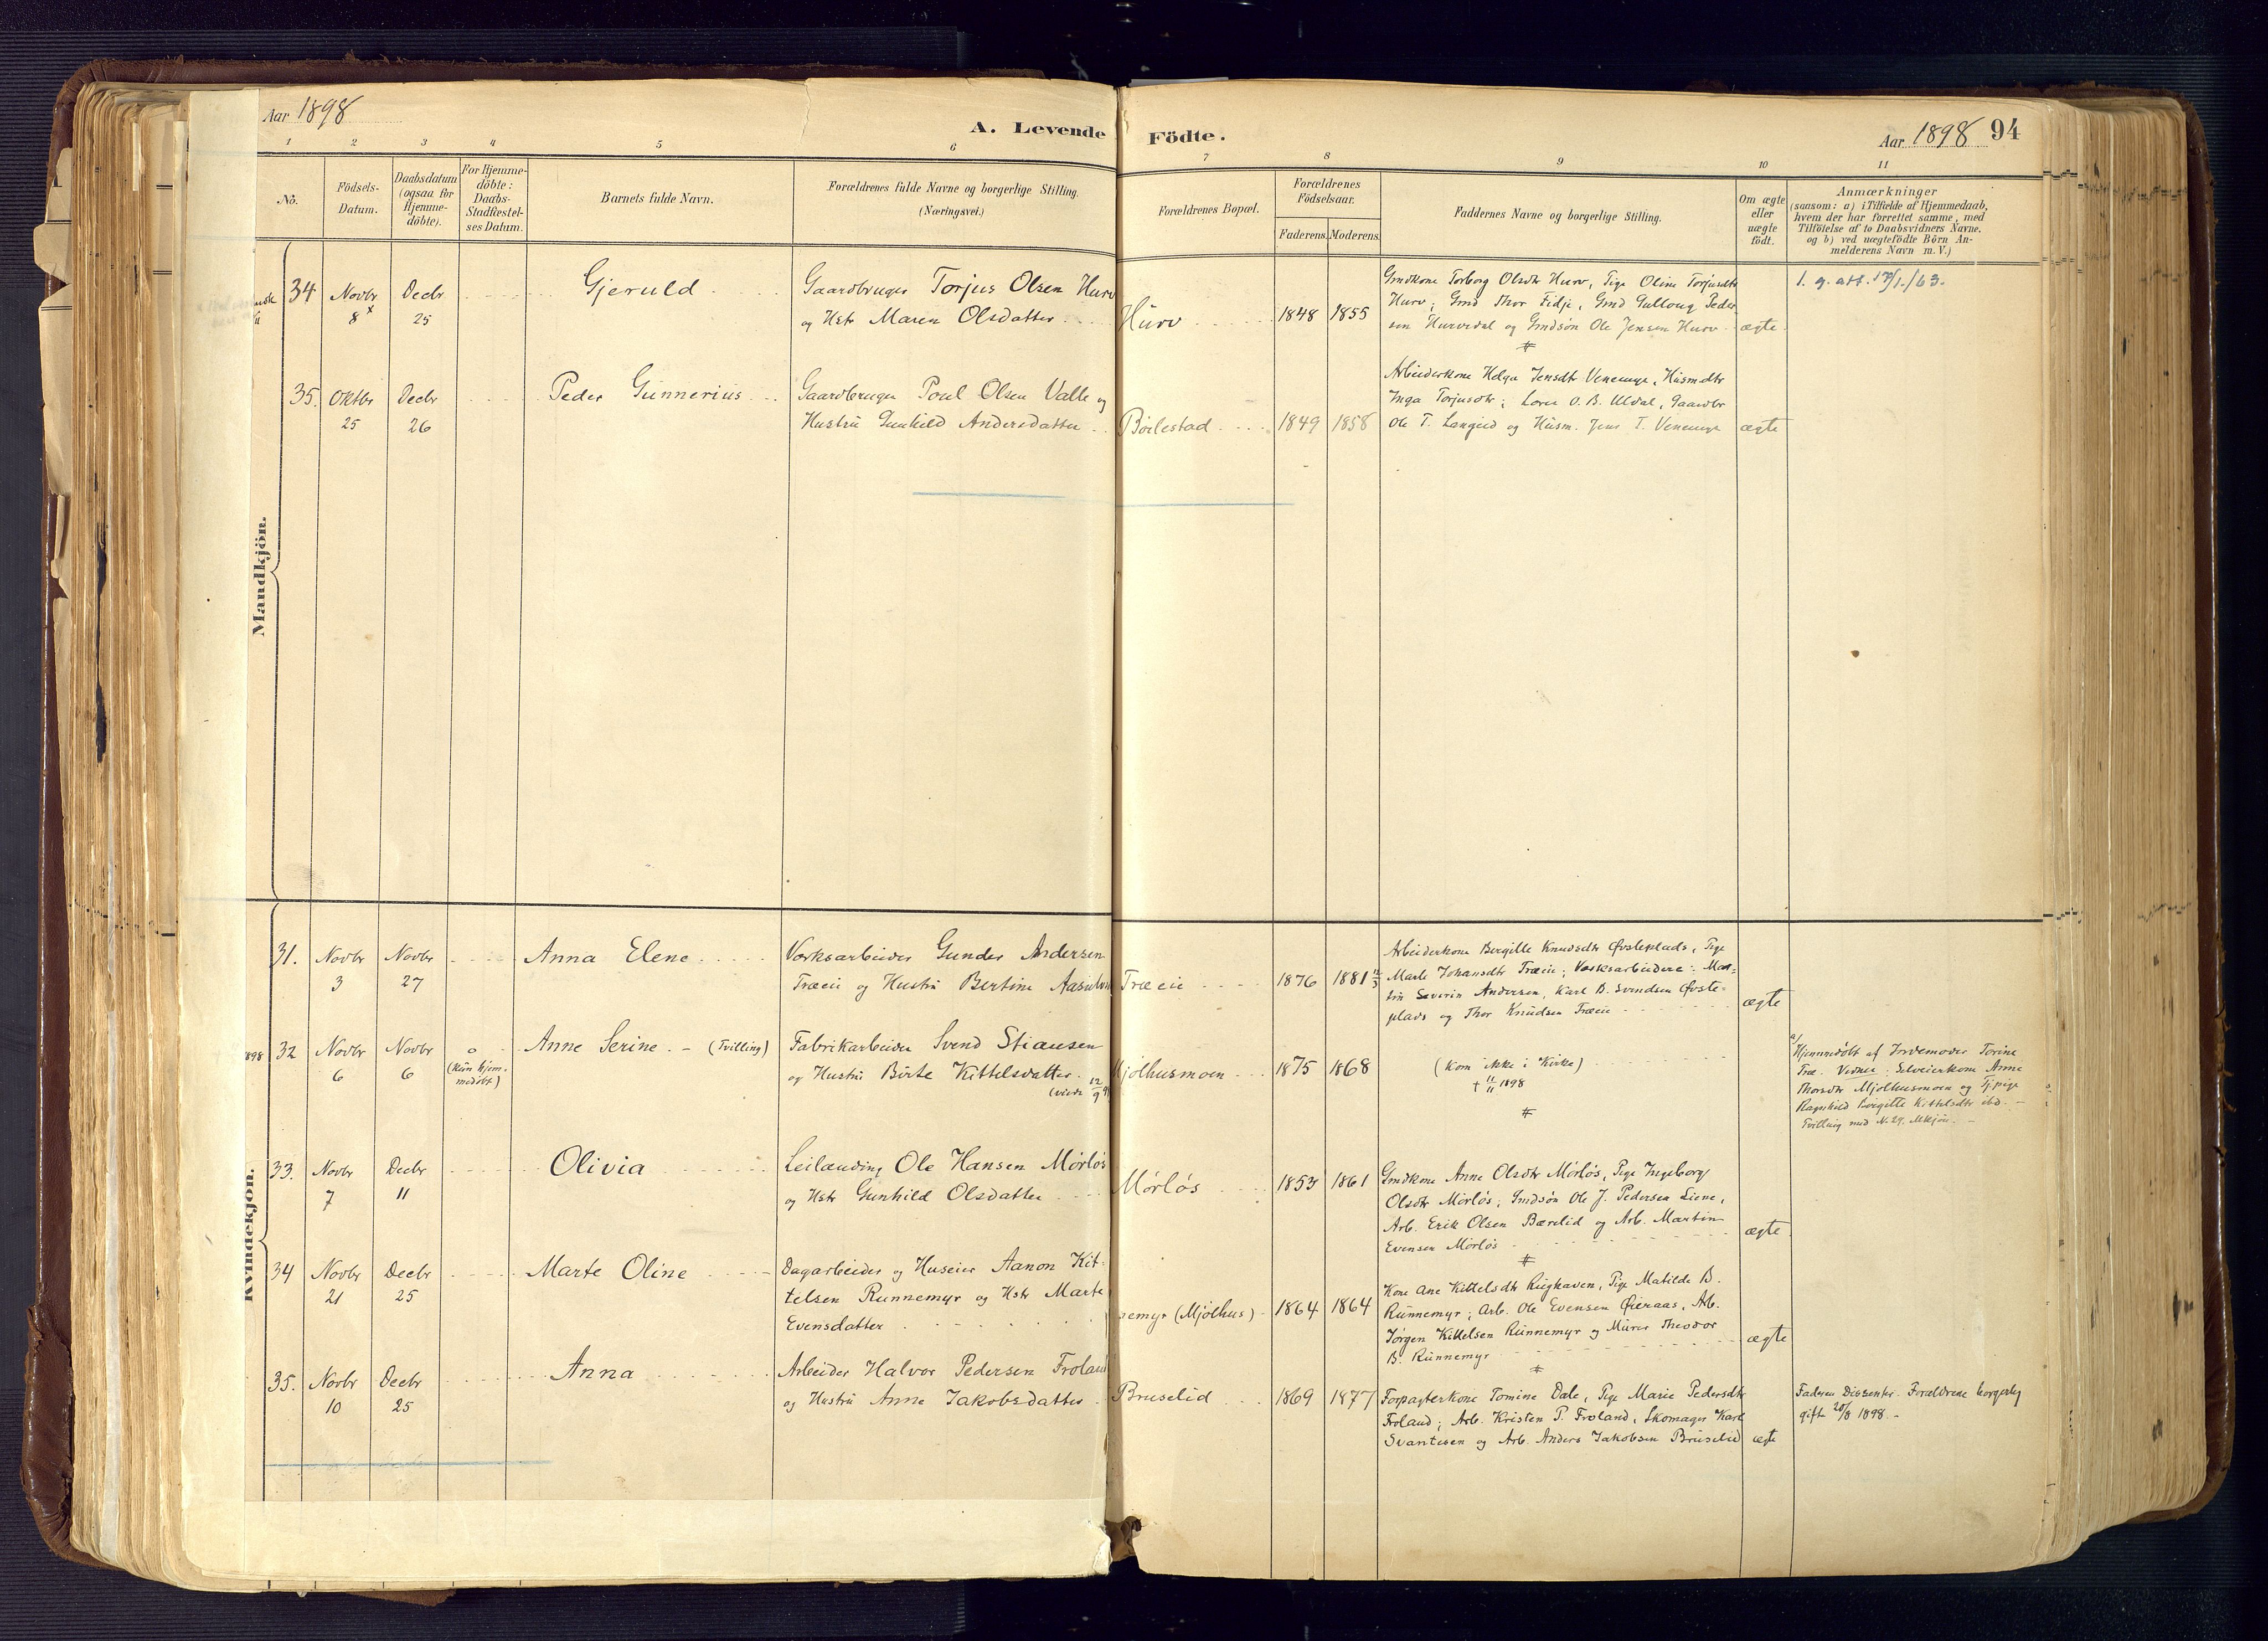 Aar 1898
A. Levende Födte.
Aar 1898 94
1 2 3 4 5 6 7 8 9 10 11
No.
Födsels-Datum.
Daabsdatum (ogsaa for Hjemme-döbte).
For Hjemme-döbte: Daabs-Stadfæstel-ses Datum.
Barnets fulde Navn.
Forældrenes fulde Navne og borgerlige Stilling.
(Næringsvei.)
Forældrenes Bopæl.
Forældrenes Födselsaar.
Faderens. Moderens.
Faddernes Navne og borgerlige Stilling.
Om ægte eller uægte födt.
Anmærkninger
(saasom: a) i Tilfælde af Hjemmedaab,
hvem der har forrettet samme, med
Tilföielse af to Daabsvidners Navne.
og b) ved uægtefödte Börn An-
melderens Navn m. V.)
Mandkjön.
34 Novbr 8 Decbr 25
Gjeruld
Gaardbruger Torjus Olsen Hurv
og Hstr Maren Olsdatter
Hurv 1848 1855
Gmdkone Torborg Olsdtr Hurv, Pige Oline Torjusdtr
Hurv; Gmd Thor Fidje, Gmd Gulloug Peder-
sen Hurvedal og Gmdsøn Ole Jensen Hurv
ægte
1. g. att. 17/1./63.
35. Oktbr 25 Decbr 26
Peder Gunnerius
Gaardbruger Poul Olsen Valle og
Hustru Gunhild Andersdatter
Børlestad 1849 1858
Arbeiderkone Helga Jensdtr Venemyr, Husmdtr
Inga Torjusdtr; O. B. Uldal, Gaardbr
Ole T. Langjed og Husm. Jens T. Venemyr
ægte
Kvindekjön.
31. Novbr 3 Novbr 27
Anna Elene
Værksarbeider Gunder Andersen
Træeie og Hustru Bertine
Træeie 1876 1881 12/3
Arbeiderkone Bergitte Knudsdtr Øvsteplads, Pige
Marte Johansdtr Træeie; Værksarbeidere: Mar-
tin Severin Andersen, Karl B. Svendsen Øvste-
plads og Thor Knudsen Træeie
ægte
32 Novbr 6 Novbr 6
(Kun hjem-
medøbt)
Anne Serine. - (Tvilling)
Fabrikarbeider Svend Stiansen
og Hustru Birte Kittelsdatter
Mjølhusmoen 1875 1868
(Kom ikke i Kirke)
† 11/11 1898
a/
Hjemmedøbt af Jordemoder Torine
Træ. Vidner: Selveierkone Anne
Thorsdtr Mjølhusmoen og Tjpige
Ragnhild Birgitte Kittelsdtr ibd. -
Tvilling med N. 29. Mkjøn. -
33. Novbr 7 Decbr 11
Olivia
Leilænding Ole Hansen Mørløs
og Hstr Gunhild Olsdatter
Mørløs 1853 1861
Gmdkone Anne Olsdtr Mørløs, Pige Ingeborg
Olsdtr Mørløs; Gmdsøn Ole J. Pedersen Liene,
Arb. Erik Olsen Bærelid og Arb. Martin
Evensen Mørløs
ægte
34 Novbr 21 Decbr 25
Marte Oline
Dagarbeider og Huseier Aanon Kit-
telsen Runnemyr og Hstr Marte
Evensdatter
emyr (Mjølhus) 1864 1864
Kone Ane Kittelsdtr Rughaven, Pige Matilde B.
Runnemyr; Arb. Ole Evensen Øieraas, Arb.
Jørgen Kittelsen Runnemyr og Murer Theodor
B. Runnemyr
ægte
35. Novbr 10 Decbr 25
Anna
Arbeider Halvor Pedersen Froland
og Hustru Anne Jakobsdatter
Bruselid 1869 1877
Forpagterkone Tomine Dale, Pige Marie Pedersdtr
Froland; Arb. Kristen P. Froland, Skomager Karl
Svantesen og Arb. Anders Jakobsen Bruselid
ægte
Faderen Dissenter. Forældrene borgerlig
gift 20/8 1898. -